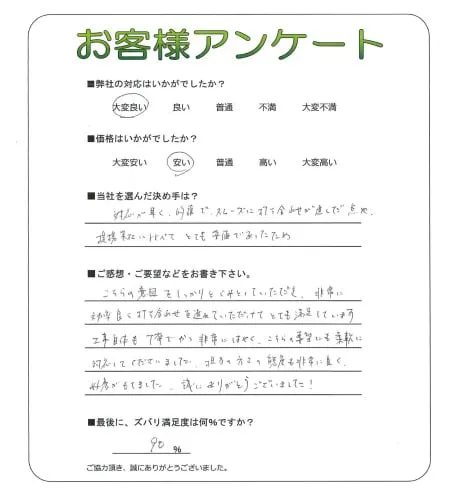 お客様アンケート
■弊社の対応はいかがでしたか？
大変良い 良い 普通 不満 大変不満
■価格はいかがでしたか？
大変安い 安い 普通 高い 大変高い
■当社を選んだ決め手は？
対応が早く、的確で、スムーズに打ち合わせが進んだ点や、
提携会社に比べて とても安価であったため
■ご感想・ご要望などをお書き下さい。
こちらの意図をしっかりとくみとっていただき、非常に
効率良く打ち合わせを進めていただけて とても満足しています
工事自体も 丁寧でかつ非常にはやく、こちらの要望にも柔軟に
対応してくださいました。担当の方々の態度も非常に良く、
好感がもてました。誠にありがとうございました！
■最後に、ズバリ満足度は何％ですか？
90 ％
ご協力頂き、誠にありがとうございました。